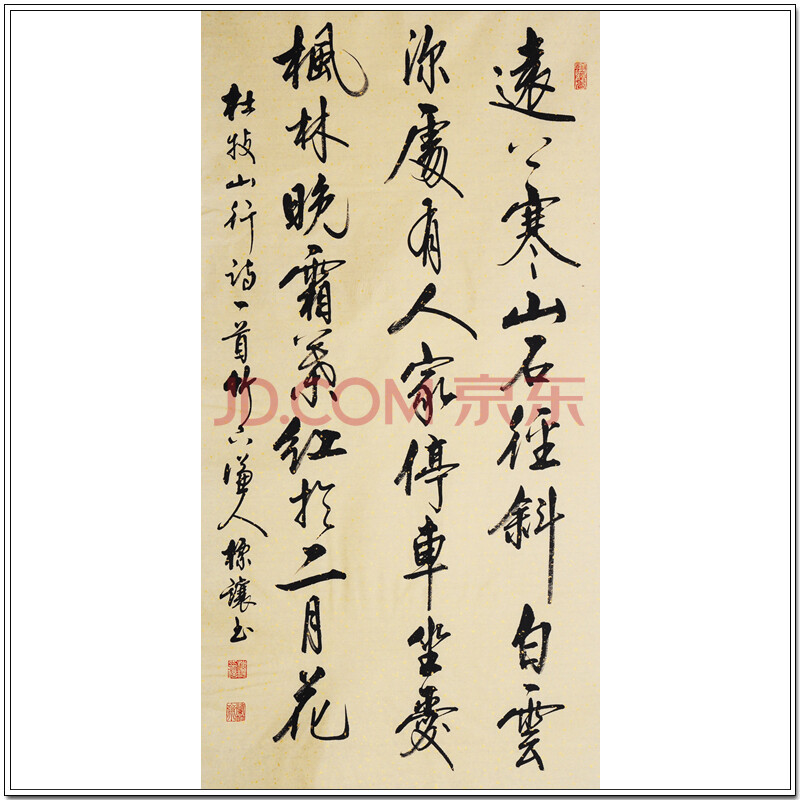 遠上寒山石徑斜白雲
深處有人家停車坐愛
楓林晚霜葉紅於二月花
杜牧山行诗一首竹下謙人讓书
JD.COM 京东